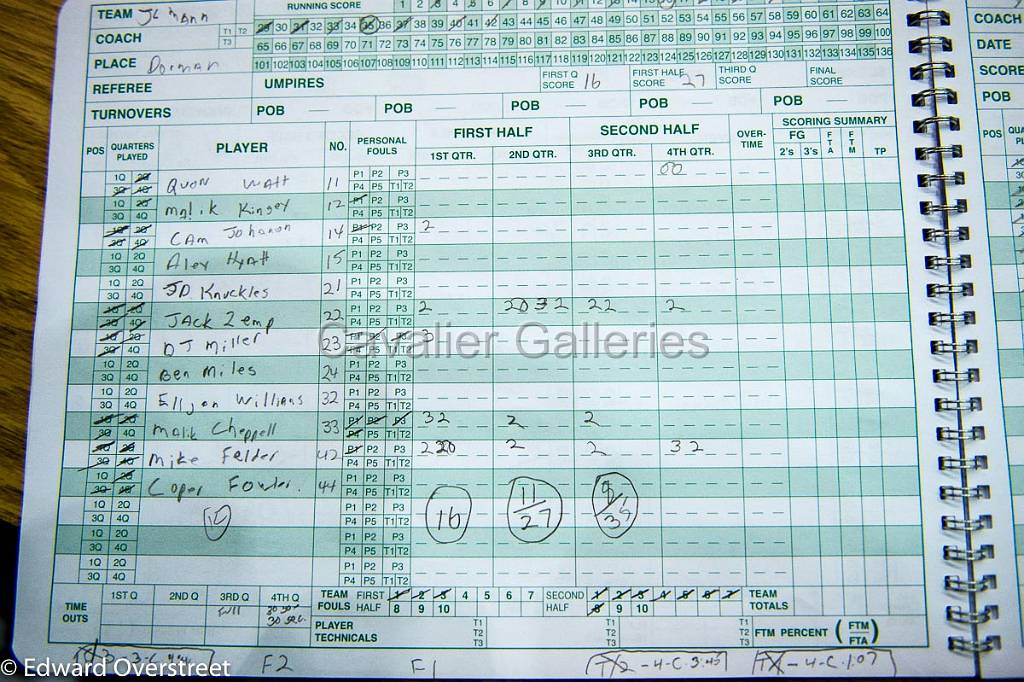 TEAM JL Mann RUNNING SCORE
29 30 31 32 33 34 35 36 37 38 39 40 41 42 43 44 45 46 47 48 49 50 51 52 53 54 55 56 57 58 59 60 61 62 63 64
COACH T1 T2 T3
65 66 67 68 69 70 71 72 73 74 75 76 77 78 79 80 81 82 83 84 85 86 87 88 89 90 91 92 93 94 95 96 97 98 99 100
PLACE Dorman
101 102 103 104 105 106 107 108 109 110 111 112 113 114 115 116 117 118 119 120 121 122 123 124 125 126 127 128 129 130 131 132 133 134 135 136
REFEREE UMPIRES FIRST Q SCORE 16 FIRST HALF SCORE 27 THIRD Q SCORE FINAL SCORE
TURNOVERS POB — POB — POB — POB — POB —
POS QUARTERS PLAYED PLAYER NO. PERSONAL FOULS FIRST HALF SECOND HALF OVER-TIME SCORING SUMMARY
1ST QTR. 2ND QTR. 3RD QTR. 4TH QTR. FG 2's 3's FTA FTM TP
1Q 2Q 3Q 4Q Quon Watt 11 P1 P2 P3 P4 P5 T1 T2 00
1Q 2Q 3Q 4Q Malik Kingey 12 P1 P2 P3 P4 P5 T1 T2
1Q 2Q 3Q 4Q Cam Johanon 14 P1 P2 P3 P4 P5 T1 T2 2
1Q 2Q 3Q 4Q Alex Hyatt 15 P1 P2 P3 P4 P5 T1 T2
1Q 2Q 3Q 4Q JD Knuckles 21 P1 P2 P3 P4 P5 T1 T2
1Q 2Q 3Q 4Q JAck Zemp 22 P1 P2 P3 P4 P5 T1 T2 2 2032 22 2
1Q 2Q 3Q 4Q DJ Miller 23 P1 P2 P3 P4 P5 T1 T2 3
1Q 2Q 3Q 4Q Ben Miles 24 P1 P2 P3 P4 P5 T1 T2
1Q 2Q 3Q 4Q Elljon Willians 32 P1 P2 P3 P4 P5 T1 T2
1Q 2Q 3Q 4Q Malik Cheppell 33 P1 P2 P3 P4 P5 T1 T2 32 2 2
1Q 2Q 3Q 4Q Mike Felder 42 P1 P2 P3 P4 P5 T1 T2 220 2 2 32
1Q 2Q 3Q 4Q Coper Fowler. 44 P1 P2 P3 P4 P5 T1 T2
1Q 2Q 3Q 4Q P1 P2 P3 P4 P5 T1 T2 16 11/27
1Q 2Q 3Q 4Q P1 P2 P3 P4 P5 T1 T2
1Q 2Q 3Q 4Q P1 P2 P3 P4 P5 T1 T2
TIME OUTS 1ST Q 2ND Q 3RD Q 4TH Q TEAM FOULS FIRST HALF 1 2 3 4 5 6 7 8 9 10 SECOND HALF 1 2 3 4 5 6 7 8 9 10 TEAM TOTALS
Full 30 sec.
PLAYER TECHNICALS T1 T2 T3 T1 T2 T3 T1 T2 T3 FTM PERCENT (FTM/FTA)
F2 F1 2-4-C-3:45 4-C-1:07
COACH
DATE
SCORE
POB
POS
Cavalier Galleries
© Edward Overstreet